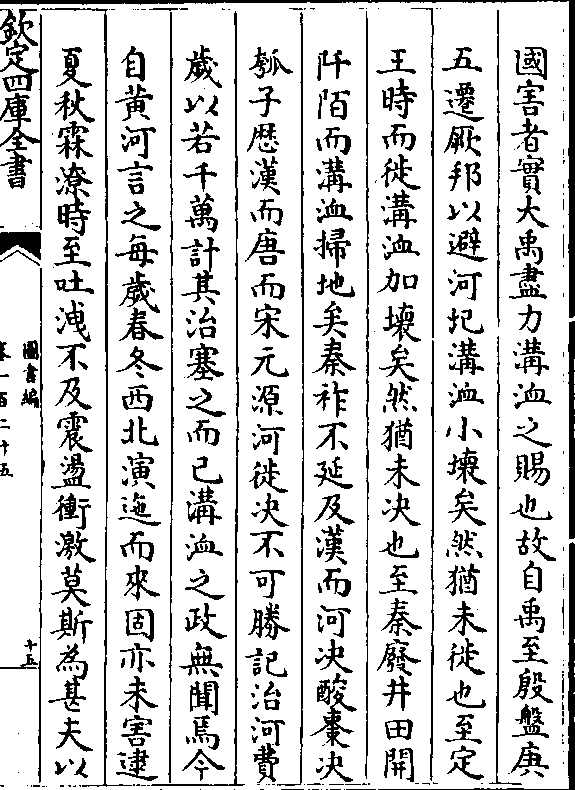 國害者實大禹盡力溝洫之賜也故自禹至殷盤庚
五遷厥邦以避河圮溝洫小壞矣然猶未徙也至定
王時而徙溝洫加壞矣然猶未决也至秦廢井田開
阡陌而溝洫掃地矣秦祚不延及漢而河决酸棗决
瓠子歴漢而唐而宋元源河徙决不可勝記治河費
歲以若千萬計其治塞之而已溝洫之政無聞焉今
自黄河言之每歲春冬西北演迤而來固亦未害逮
夏秋霖潦時至吐洩不及震盪衝激莫斯為甚夫以
欽定四庫全書
圖書編
卷一百二十五
十五